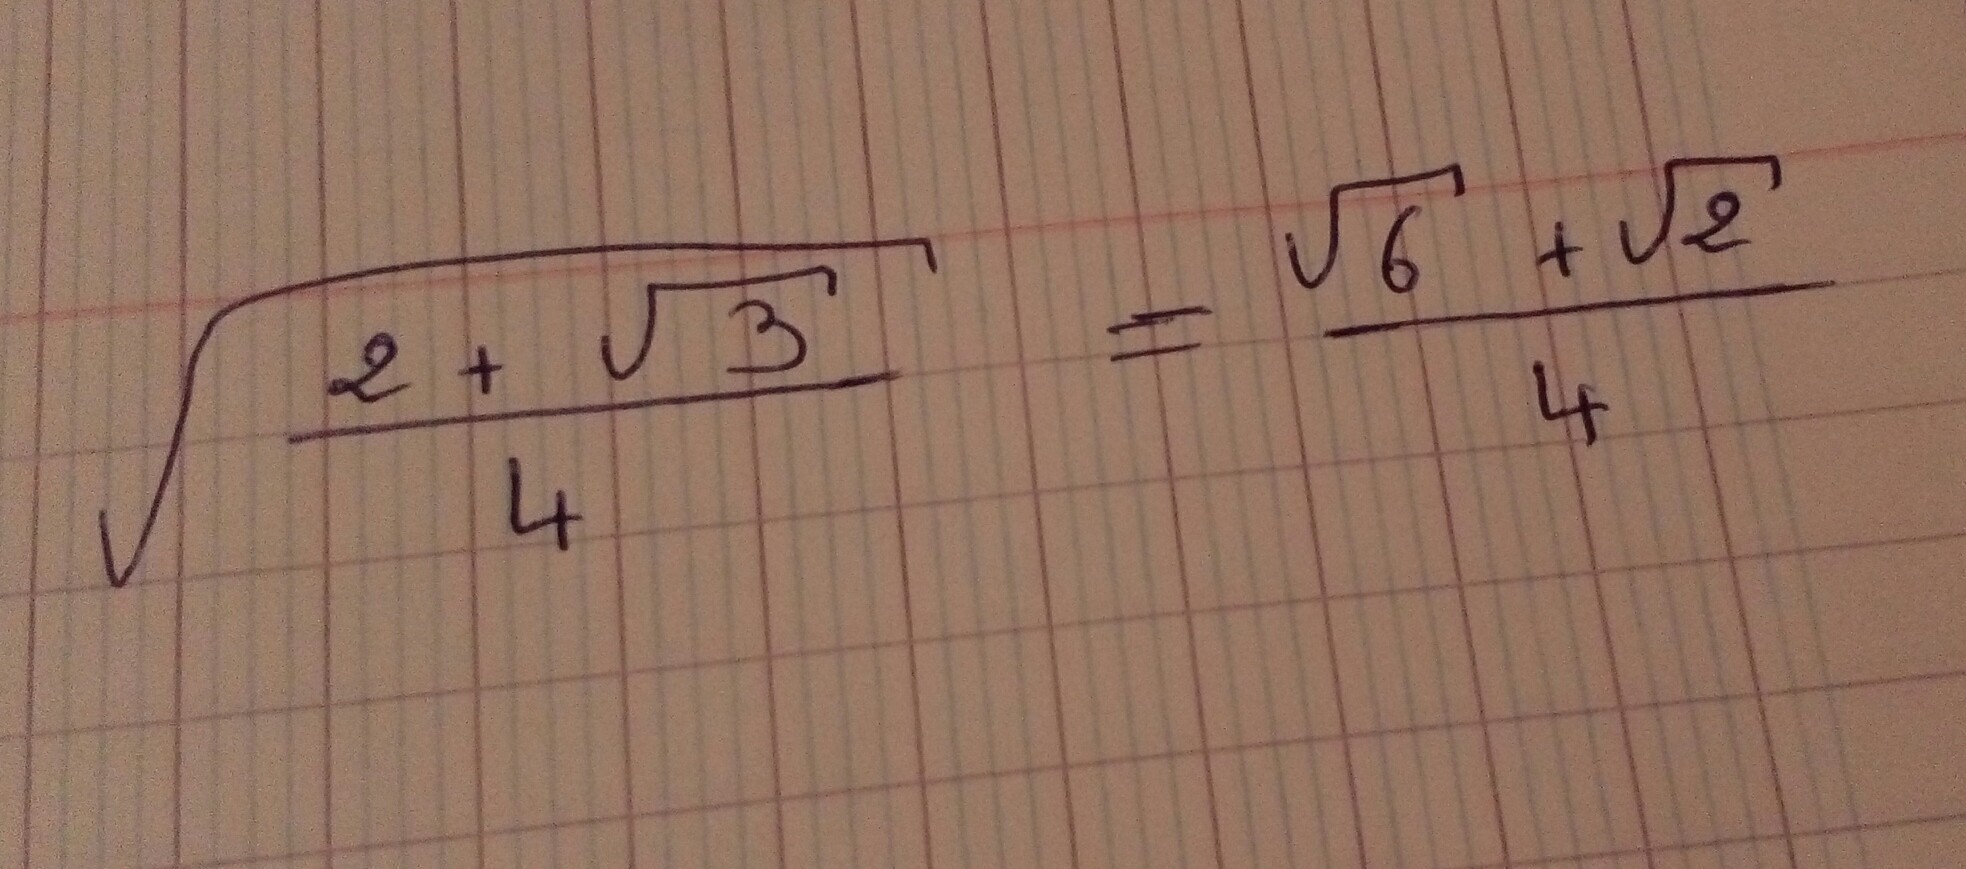 √((2 + √3)/4) = (√6 + √2)/4